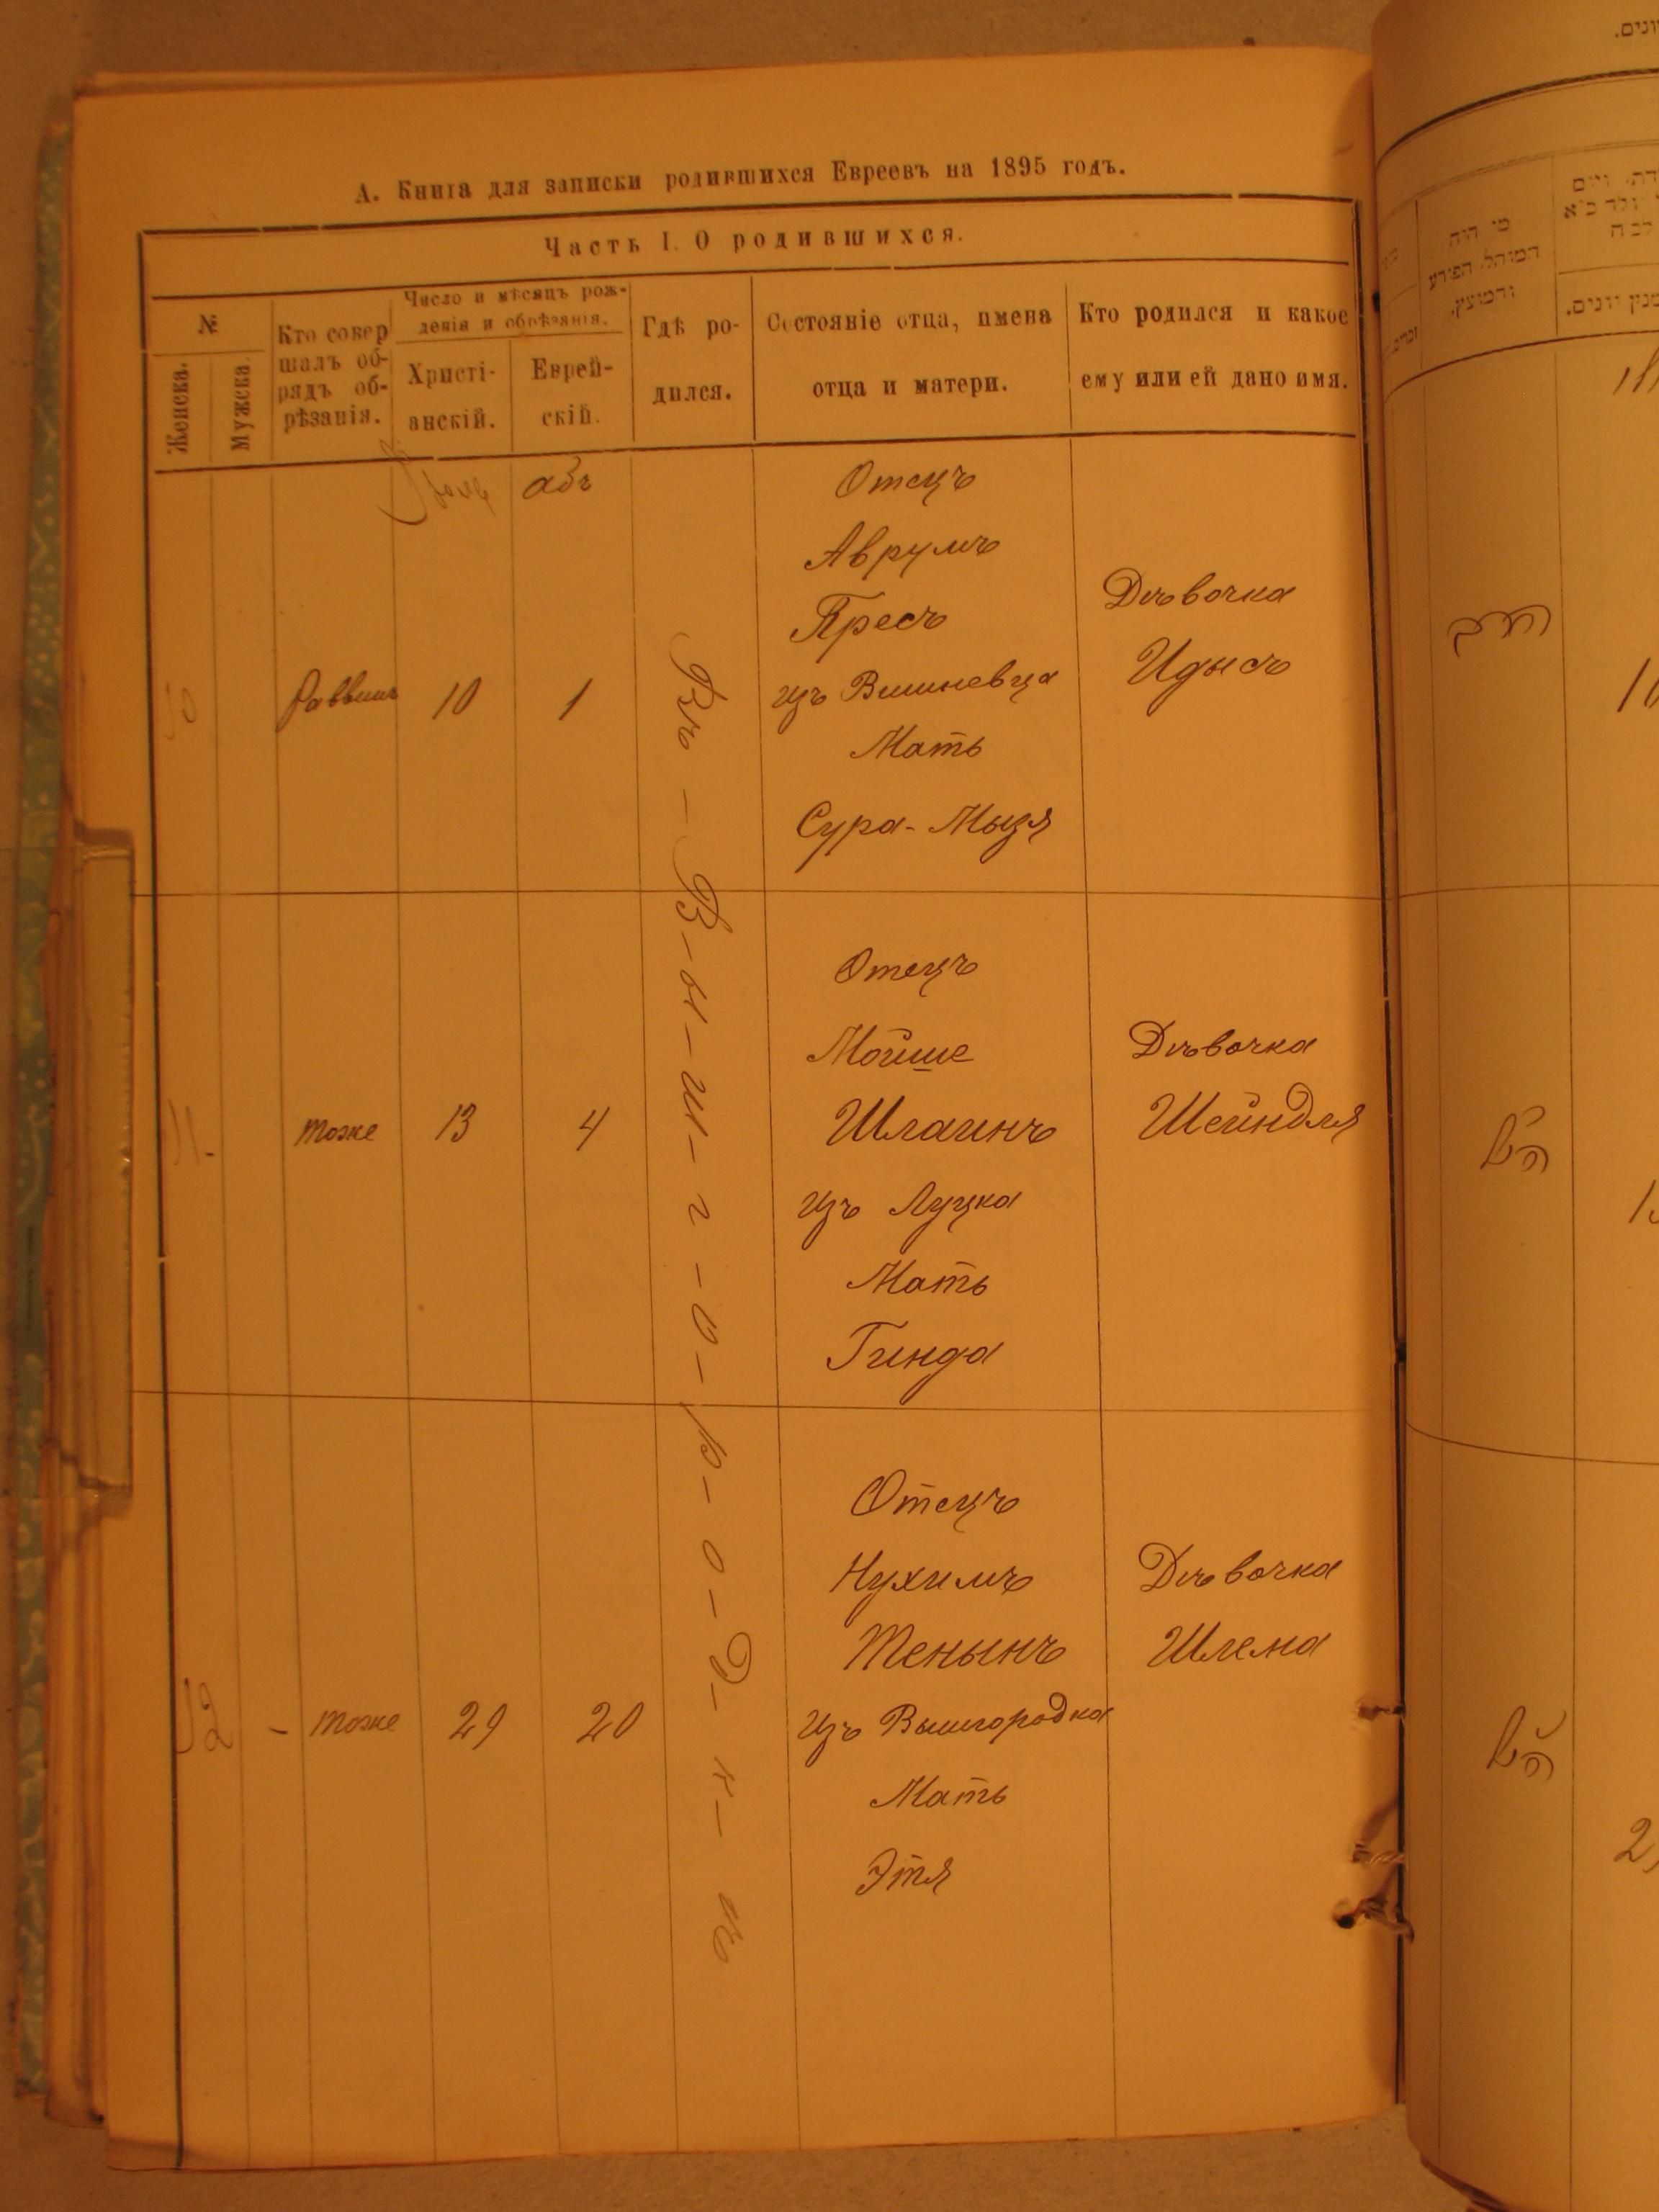 А. Книга для записки родившихся Евреевъ на 1895 годъ.
Часть I. О родившихся.
№
Женска.
Мужска.
Кто совер
шалъ об-
рядъ об-
рѣзанія.
Число и мѣсяцъ рож-
денія и обрѣзанія.
Христі-
анскій.
Еврей-
скій.
Гдѣ ро-
дился.
Состояніе отца, имена
отца и матери.
Кто родился и какое
ему или ей дано имя.
абъ
Раввинъ
10
1
Отецъ
Аврумъ
Пресъ
изъ Вишневца
Мать
Сура-Мызя
Дѣвочка
Идысъ
Въ-В-ы-ш-г-о-р-о-д-к-ѣ
11.
тоже
13
4
Отецъ
Мойше
Шлаинъ
изъ Луцка
Мать
Гинда
Дѣвочка
Шейндля
12 -
тоже
29
20
Отецъ
Нухимъ
Тенынъ
изъ Вышгородка
Мать
Этя
Дѣвочка
Шлема
מי היה
המוהל הפורע
והמוצץ.